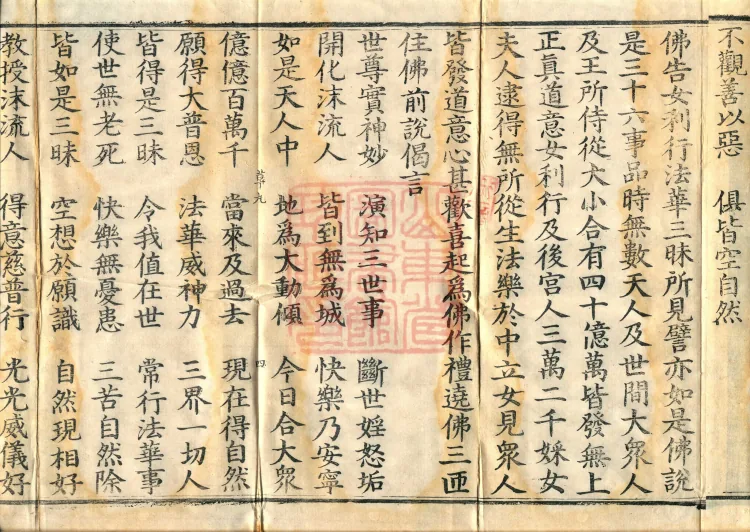 不觀善以惡　俱皆空自然
佛告女利行法華三昧所見譬亦如是佛說
是三十六事品時無數天人及世間大衆人
及王所侍從大小合有四十億萬皆發無上
正真道意女利行及後宮人三萬二千婇女
夫人逮得無所從生法樂於中立女見衆人
皆發道意心甚歡喜起爲佛作禮遶佛三匝
住佛前說偈言
世尊實神妙　演知三世事　斷世婬怒垢
開化沫流人　皆到無爲城　快樂乃安寧
如是天人中　地爲大動傾　今日合大衆
草九　四
億億百萬千　當來及過去　現在得自然
願得大普恩　法華威神力　三界一切人
皆得是三昧　令我值在世　常行法華事
使世無老死　快樂無憂患　三苦自然除
皆如是三昧　空想於願識　自然現相好
教授沫流人　得意慈普行　光光威儀好